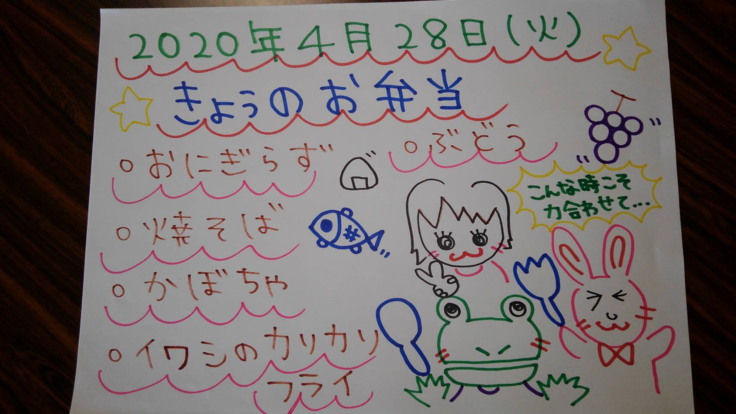 2020年4月28日(火)
きょうのお弁当
○おにぎらず
○ぶどう
○焼そば
○かぼちゃ
○イワシのカリカリ
フライ
こんな時こそ
力合わせて…